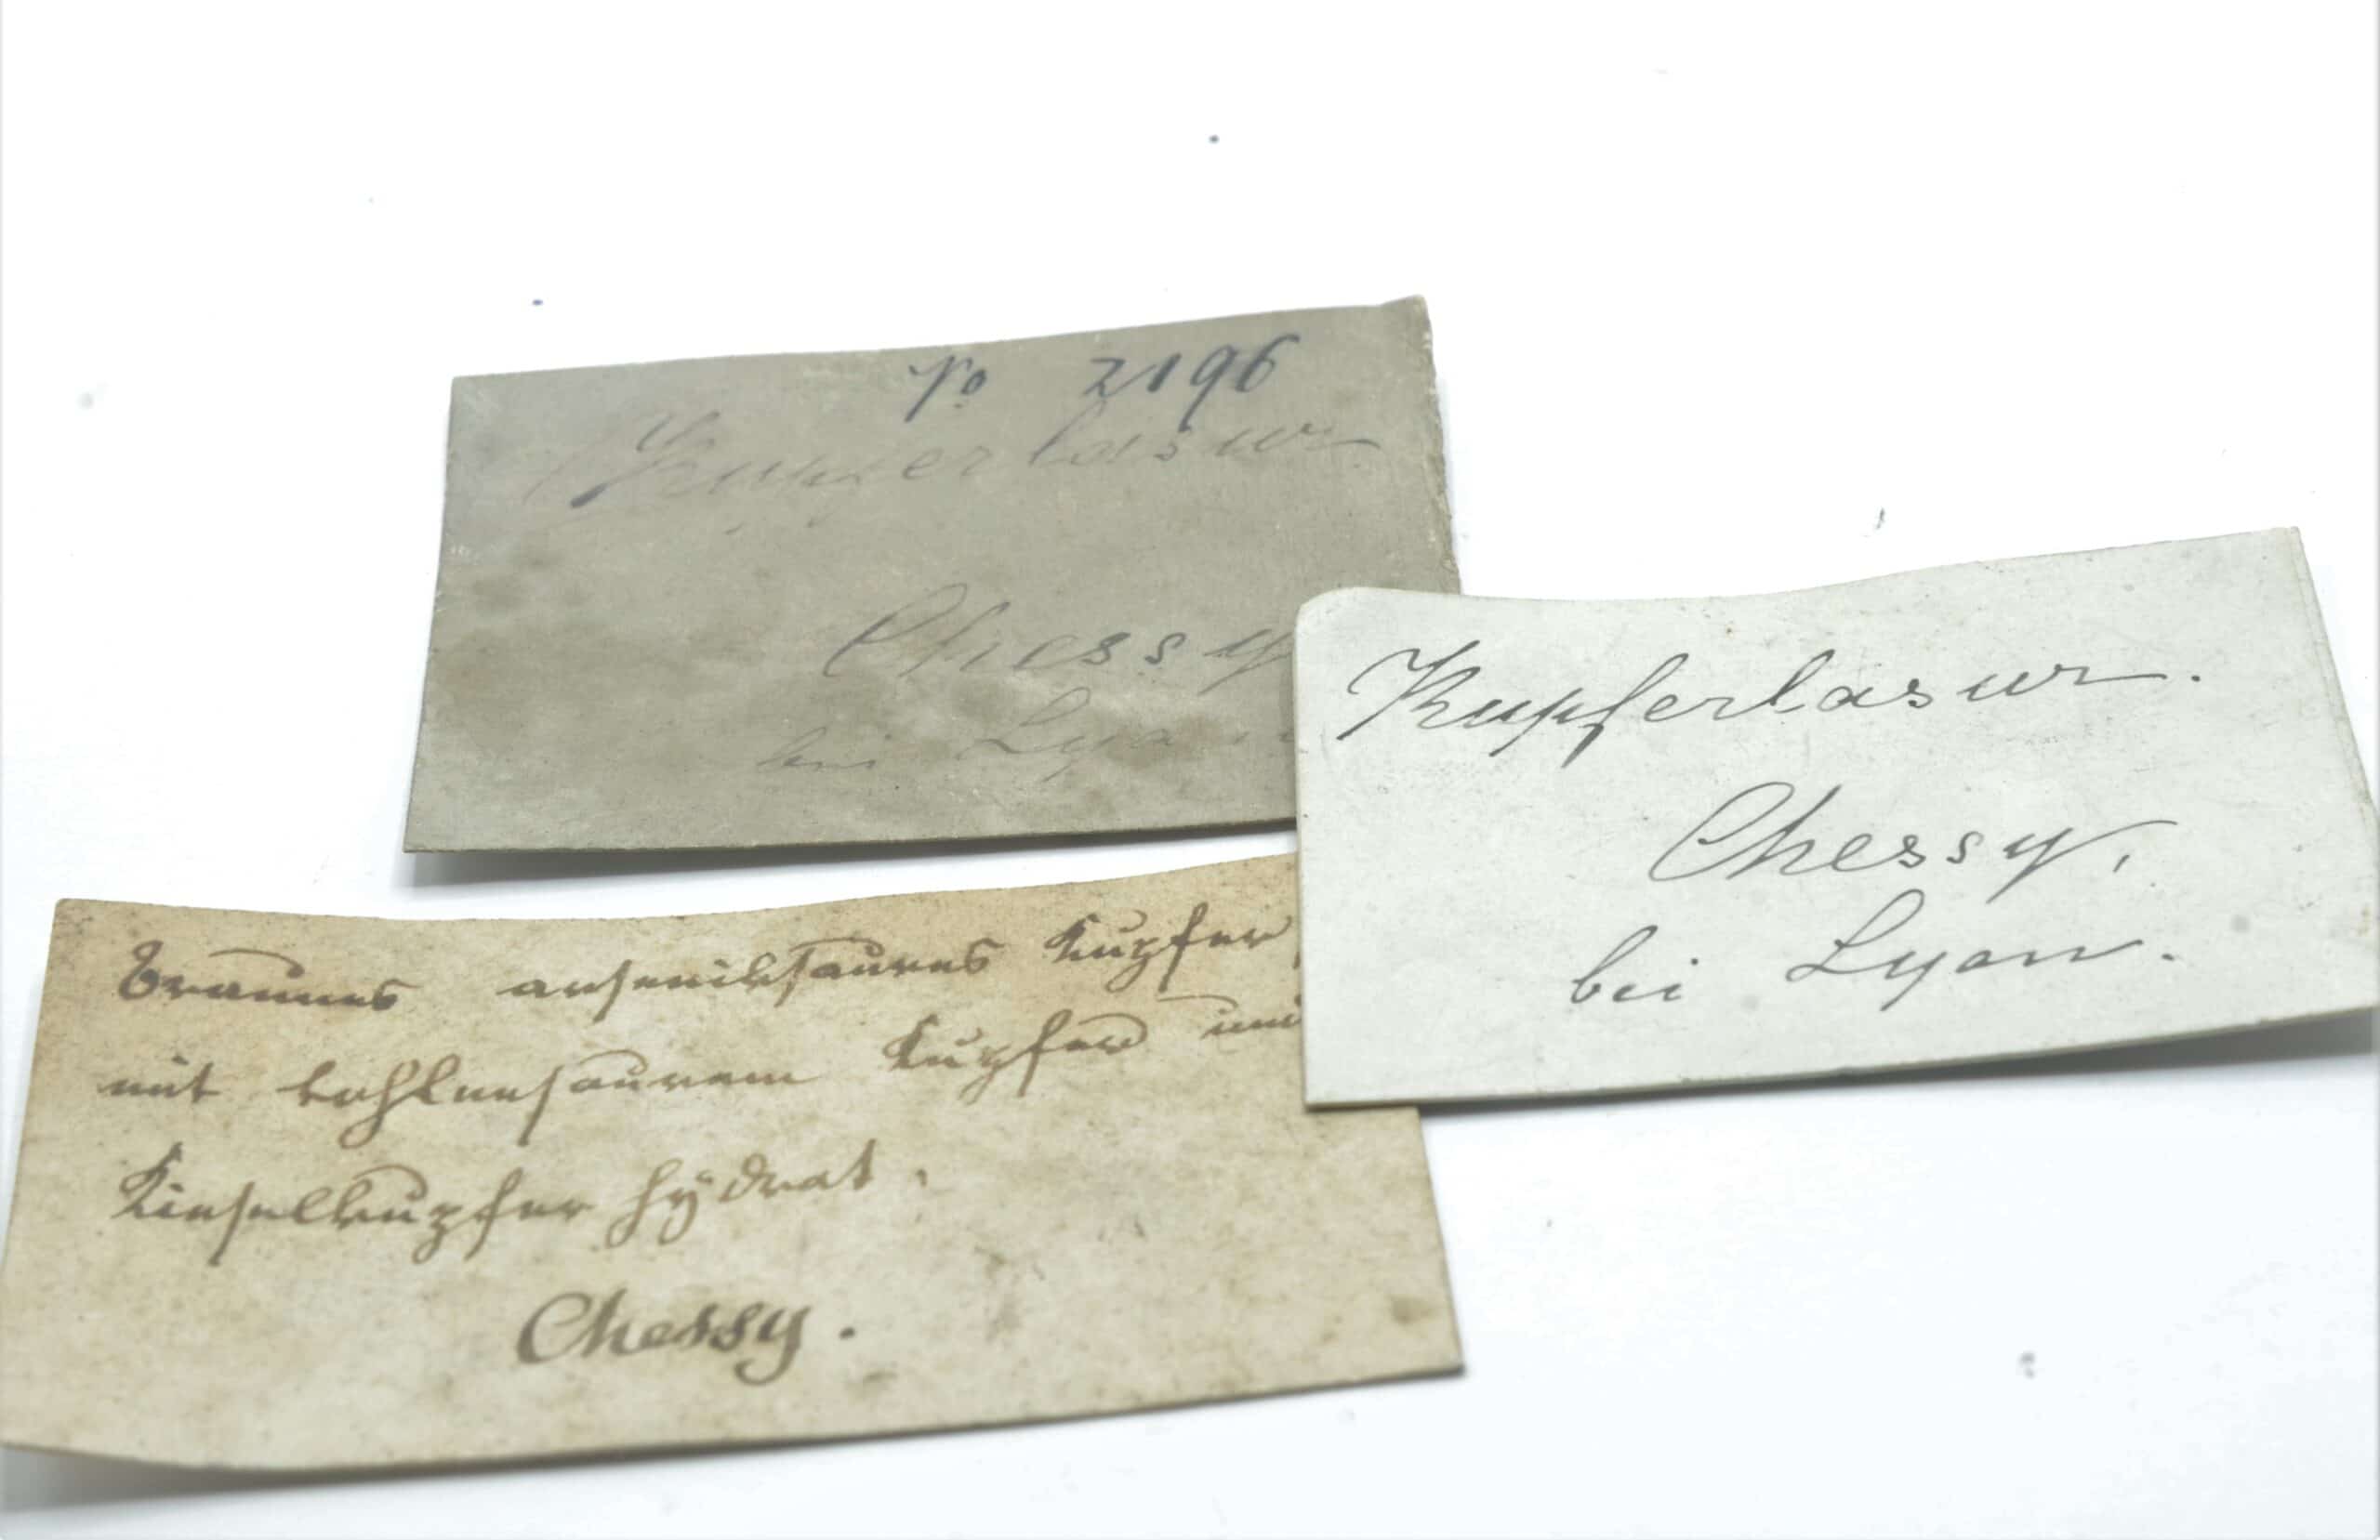 No 2196
Kupferlasur.
Chessy
bei Lyon
Kupferlasur.
Chessy,
bei Lyon.
Braunes arseniksaures Kupfer
mit kohlensaurem Kupfer und
Kieselkupfer hÿdrat.
Chessy.